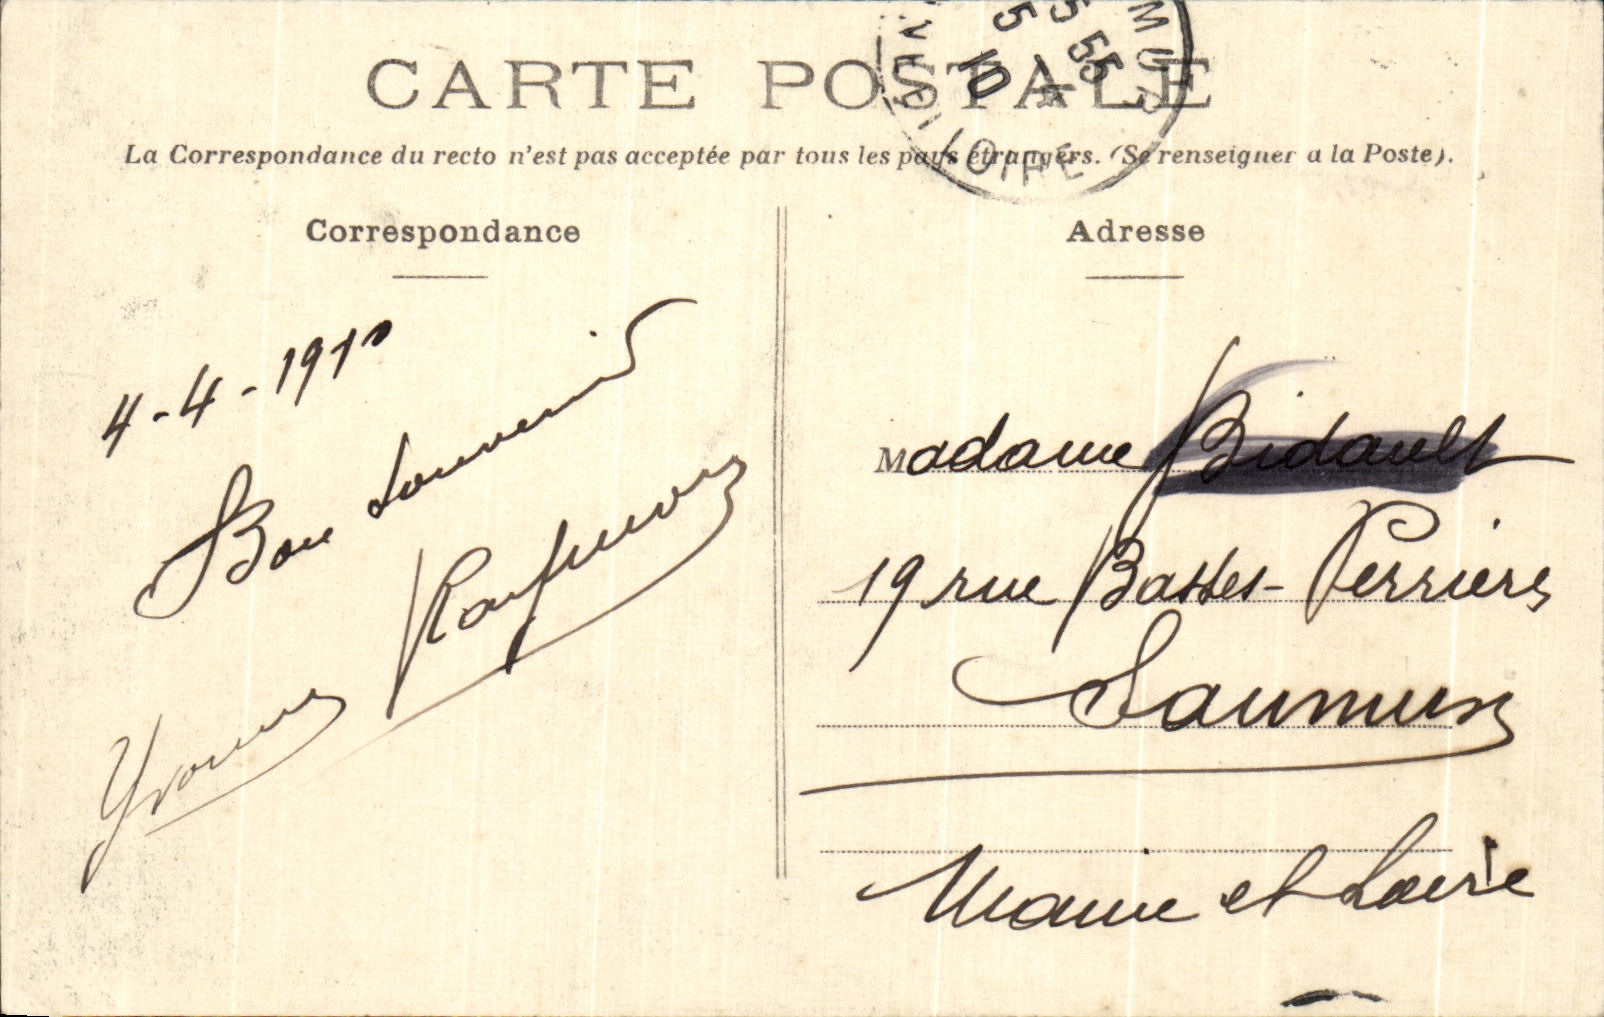 CARTE POSTALE
La Correspondance du recto n'est pas acceptée par tous les pays étrangers. (Se renseigner a la Poste).
Correspondance
Adresse
4-4-1910
Bon souvenir
Yvonne
Madame Bidault
19 rue Basses-Perrières
Saumur
Maine et Loire
5 55
5 4
10
LOIRE